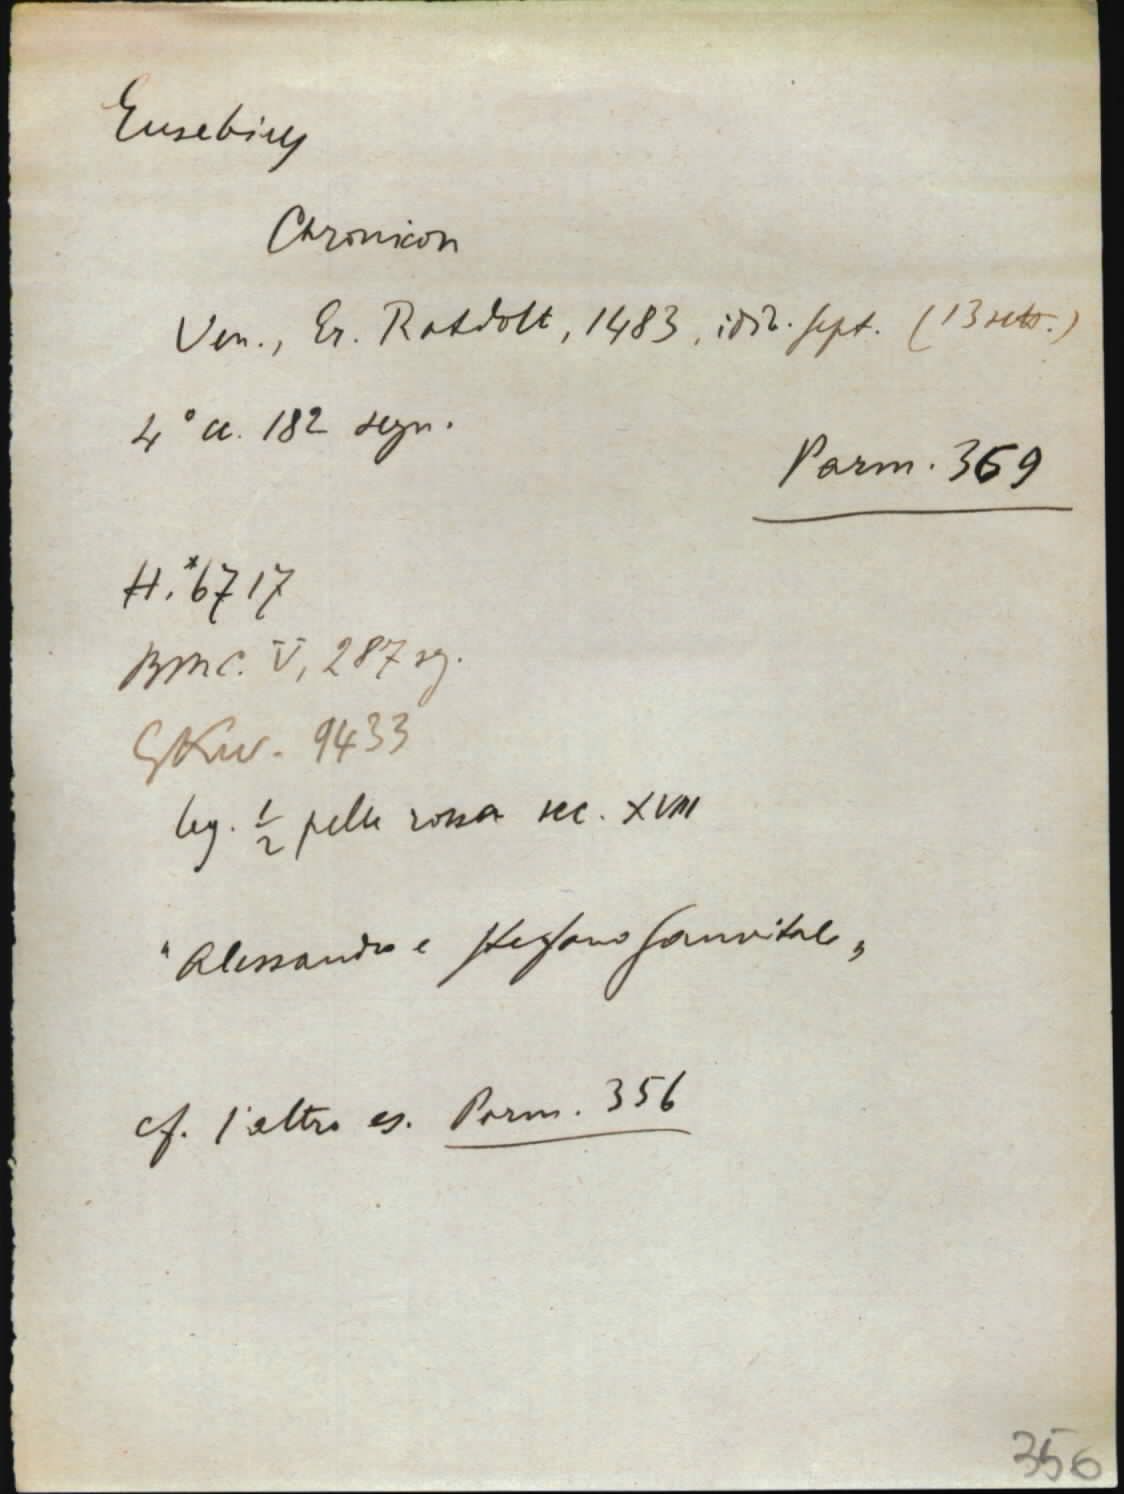 Eusebius
Chronicon
Ven., Er. Ratdolt, 1483, idib. sept. (13 sett.)
4° cc. 182 segn.
Parm. 369
H.*6717
BMC. V, 287 sg.
GKW. 9433
leg. 1/2 pelle rossa sec. XVIII
"Alessandro e Stefano Sanvitale"
cf. l'altro es. Parm. 356
356